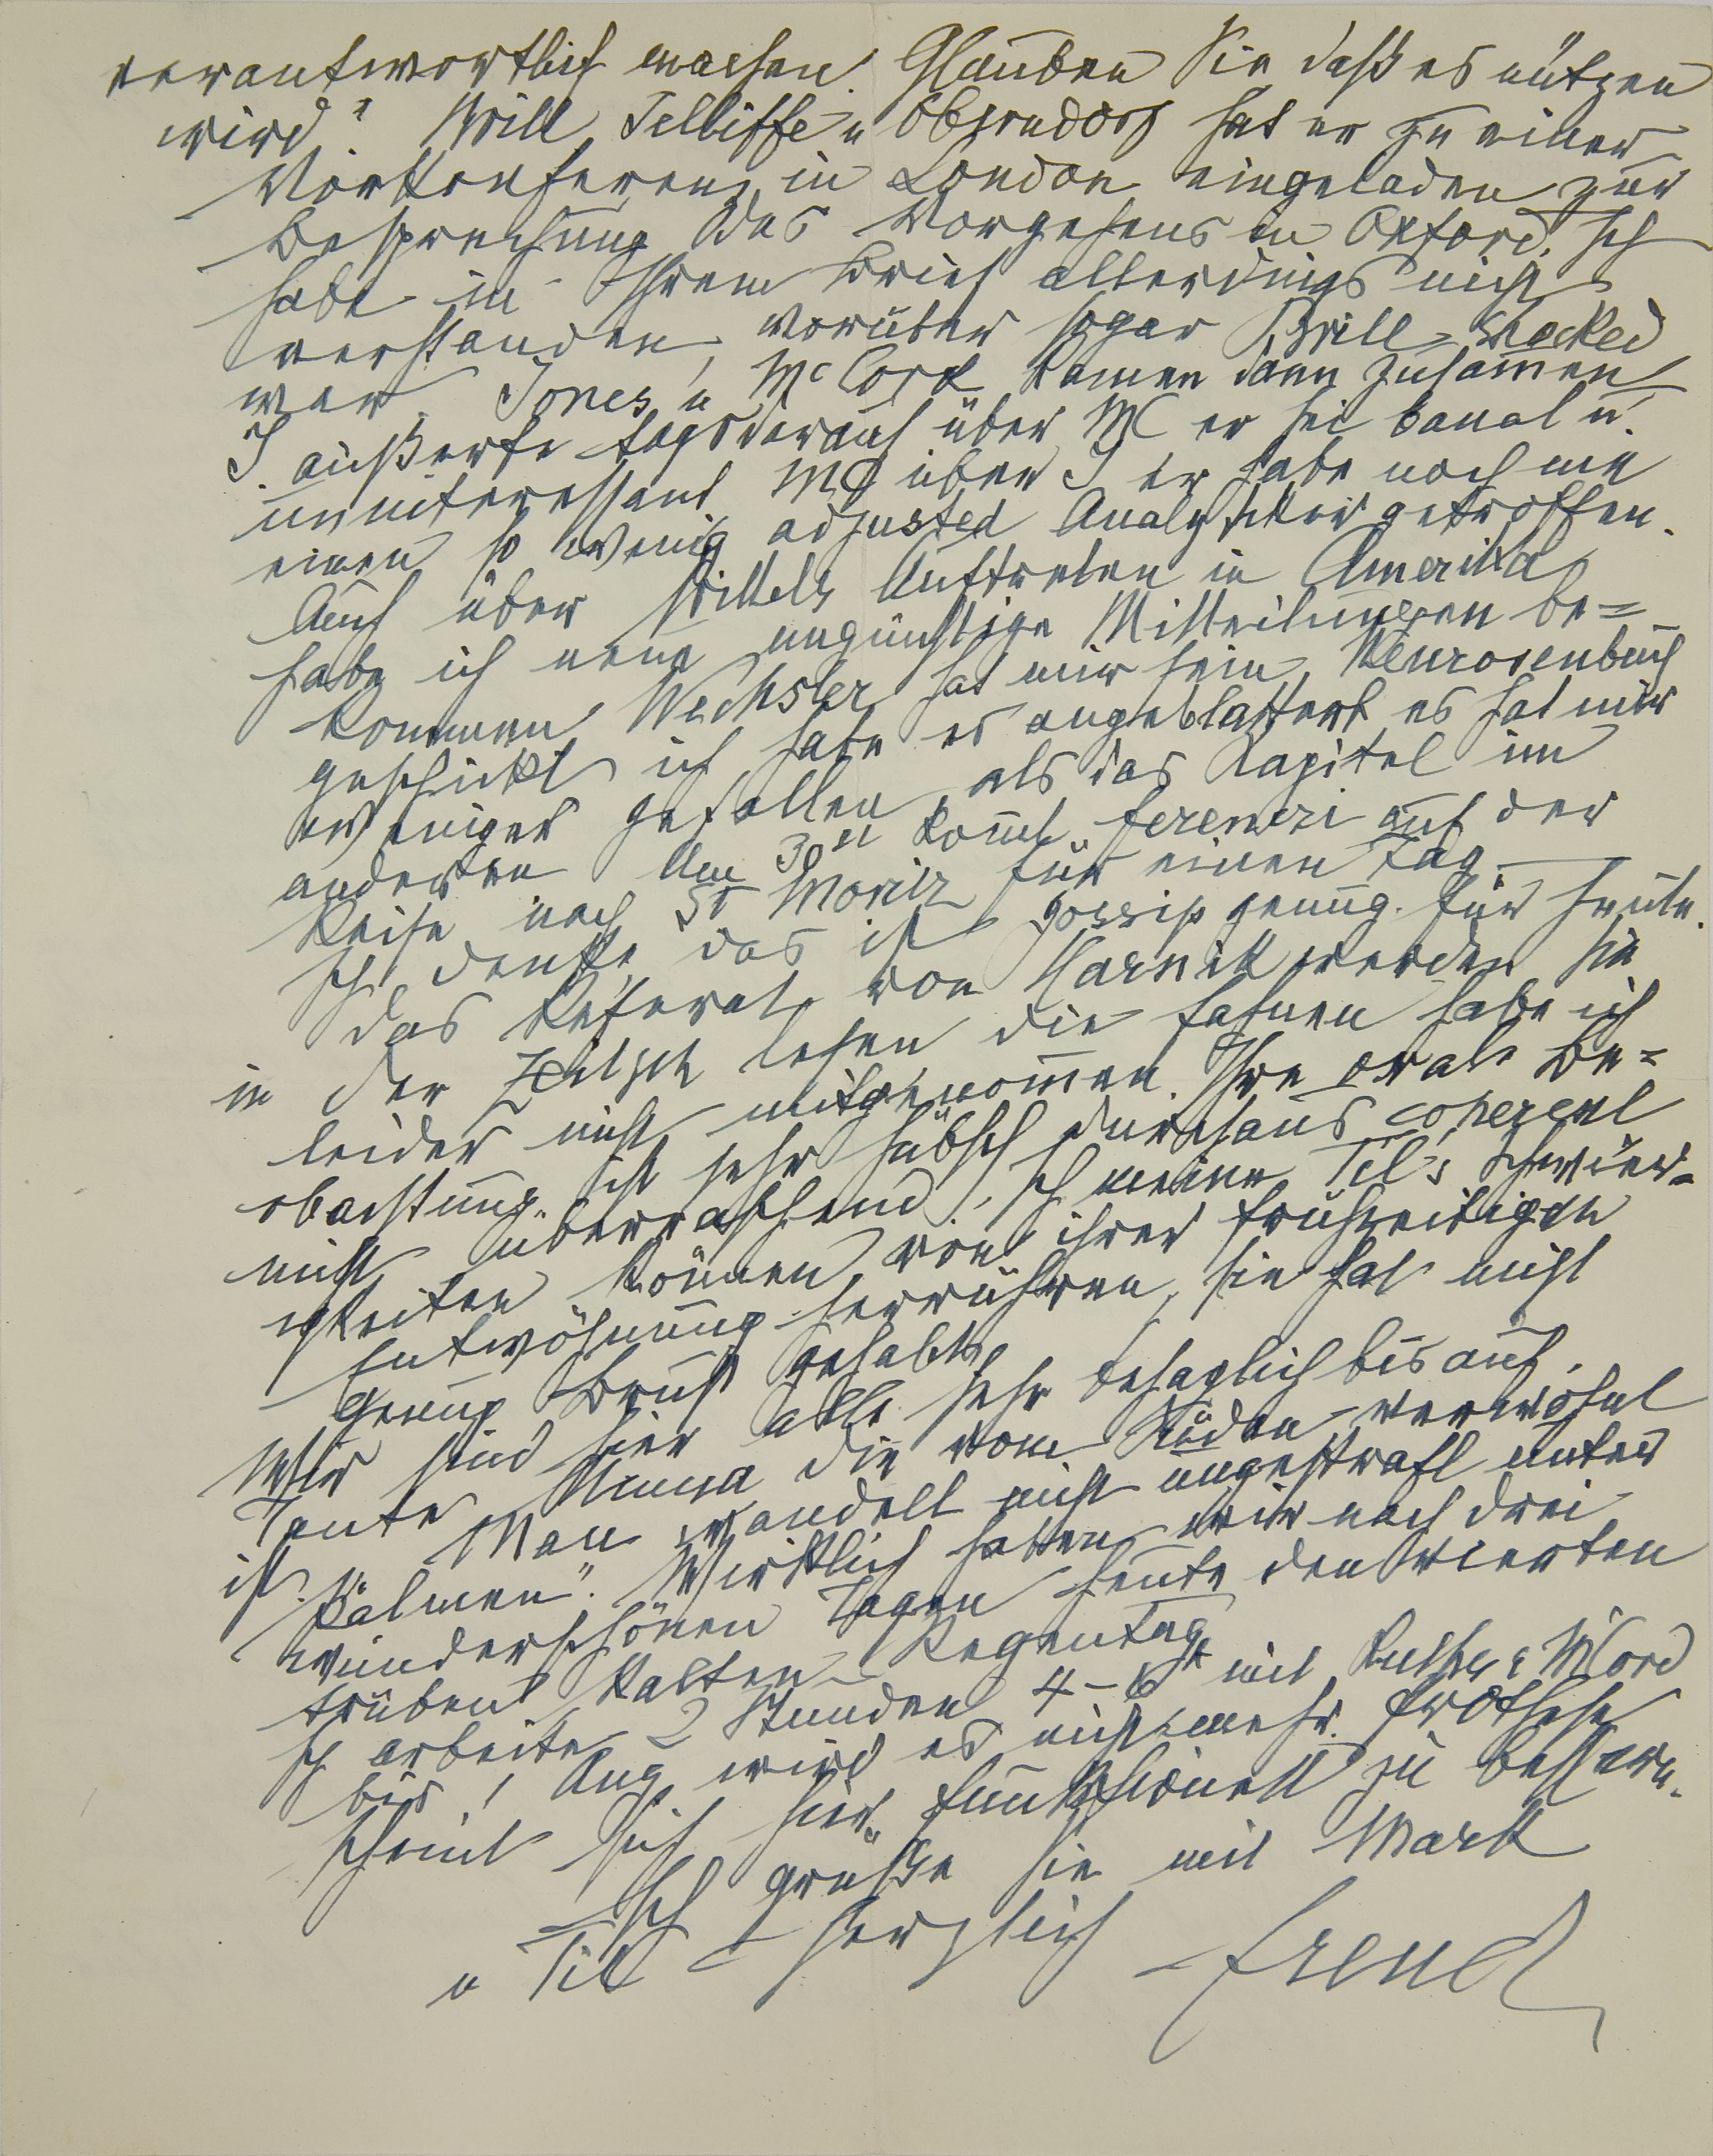 verantwortlich machen. Glauben Sie daß es nützen
wird? Brill, Jelliffe u Oberndorf hat er zu einer
Vorkonferenz in London eingeladen zur
Besprechung des Vorgehens in Oxford. Ich
habe in Ihrem Brief allerdings nicht
verstanden, worüber sogar Brill shocked
war. Jones u McCord kamen dann zusammen
J. äußerte tagsdarauf über MC er sei banal u.
uninteressant, MC über J er habe noch nie
einen so wenig adjusted Analytiker getroffen.
Auch über Wittels Auftreten in Amerika
habe ich neue ungünstige Mitteilungen be=
kommen. Wechsler hat mir sein Neurosenbuch
geschickt ich habe es angeblättert es hat mir
weniger gefallen, als das Kapitel im
anderen. Am 30st kommt Ferenczi auf der
Reise nach St Moritz für einen Tag.
Ich denke das ist gossip genug. für heute.
Das Referat von Harnik werden Sie
in der Zeitschr lesen die Fahnen habe ich
leider nicht mitgenommen. Ihre orale Be=
obachtung ist sehr hübsch durchaus coherent
nicht überraschend, ich meine Til's Schwier=
igkeiten können von ihrer frühzeitigen
Entwöhnung herrühren, sie hat nicht
genug Brust gehabt.
Wir sind hier alle sehr behaglich bis auf
Tante Minna die vom Süden verwöhnt
ist. „Man wandelt nicht ungestraft unter
Palmen". Wirklich hatten wir nach drei
wunderschönen Tagen heute den vierten
trüben kalten Regentag
Ich arbeite 2 Stunden 4–6h mit Ruth u McCord
bis 1 Aug wird es nicht mehr. Prothese
scheint sich hier „funktionell" zu bessern.
Ich grüße Sie mit Mark
u Til herzlich Freud